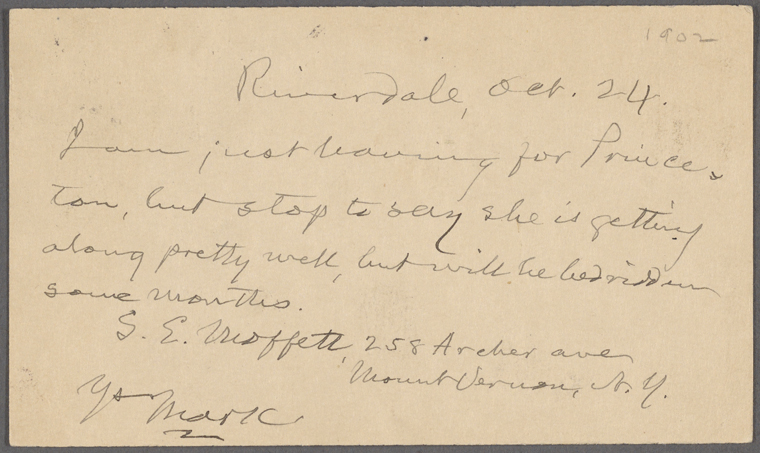 1902
Riverdale, Oct. 24.
I am just leaving for Prince-
ton, but stop to say she is getting
along pretty well, but will be bedridden
some months.
S. E. Moffett, 258 Archer ave
Mount Vernon, N. Y.
Ys Mark